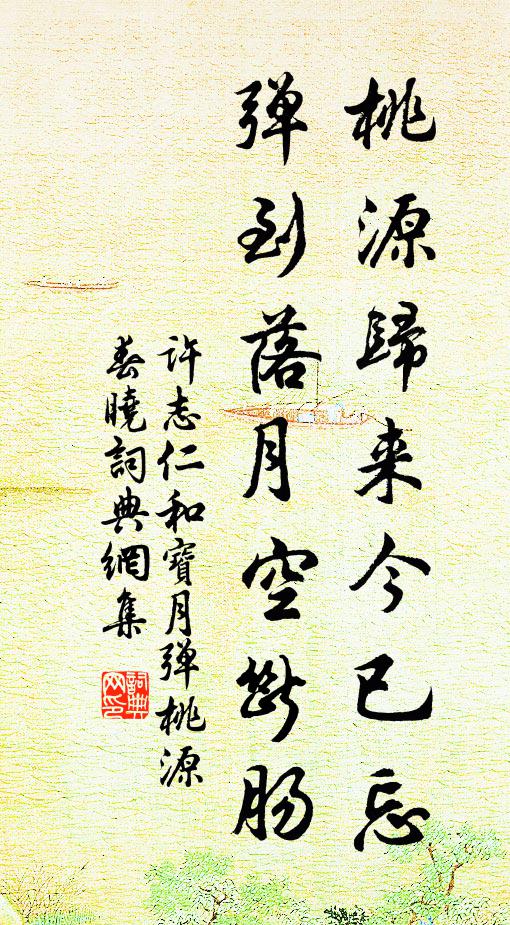 桃源歸来今已忘
弹到落月空断肠
許志仁和寶月弹桃源
春曉詞典網集
詞典
网印